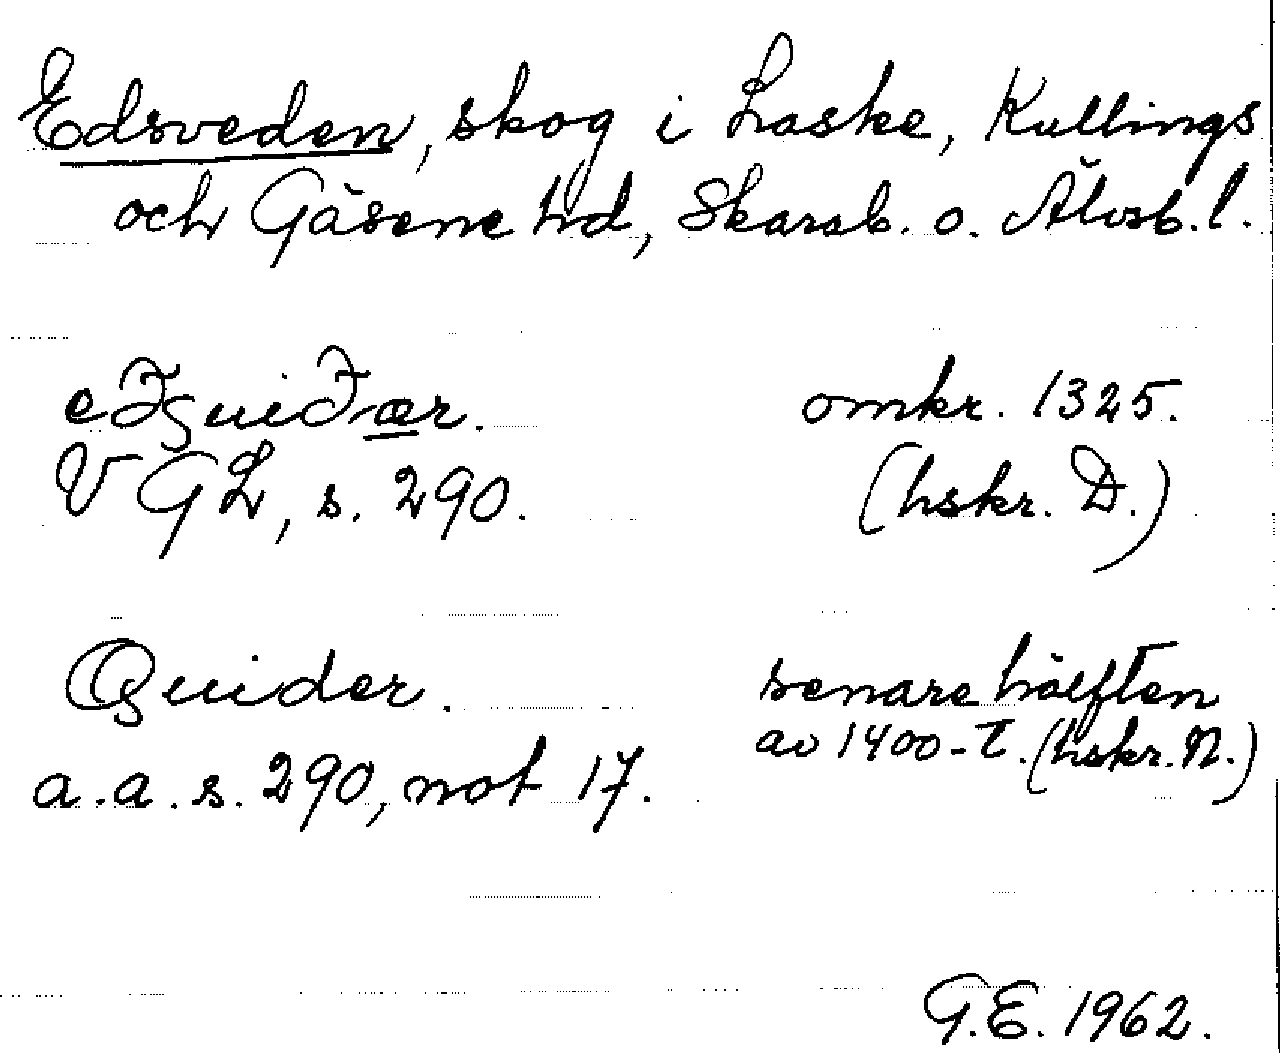 Edsveden, skog i Laske, Kullings
och Gäsene hd, Skarab. o. Älvsb. l.
eðsuiðær. omkr. 1325.
VGL, s. 290. (hskr. D.)
Osuider. senare hälften
av 1400-t. (hskr. N.)
a.a. s. 290, not 17.
G.E. 1962.